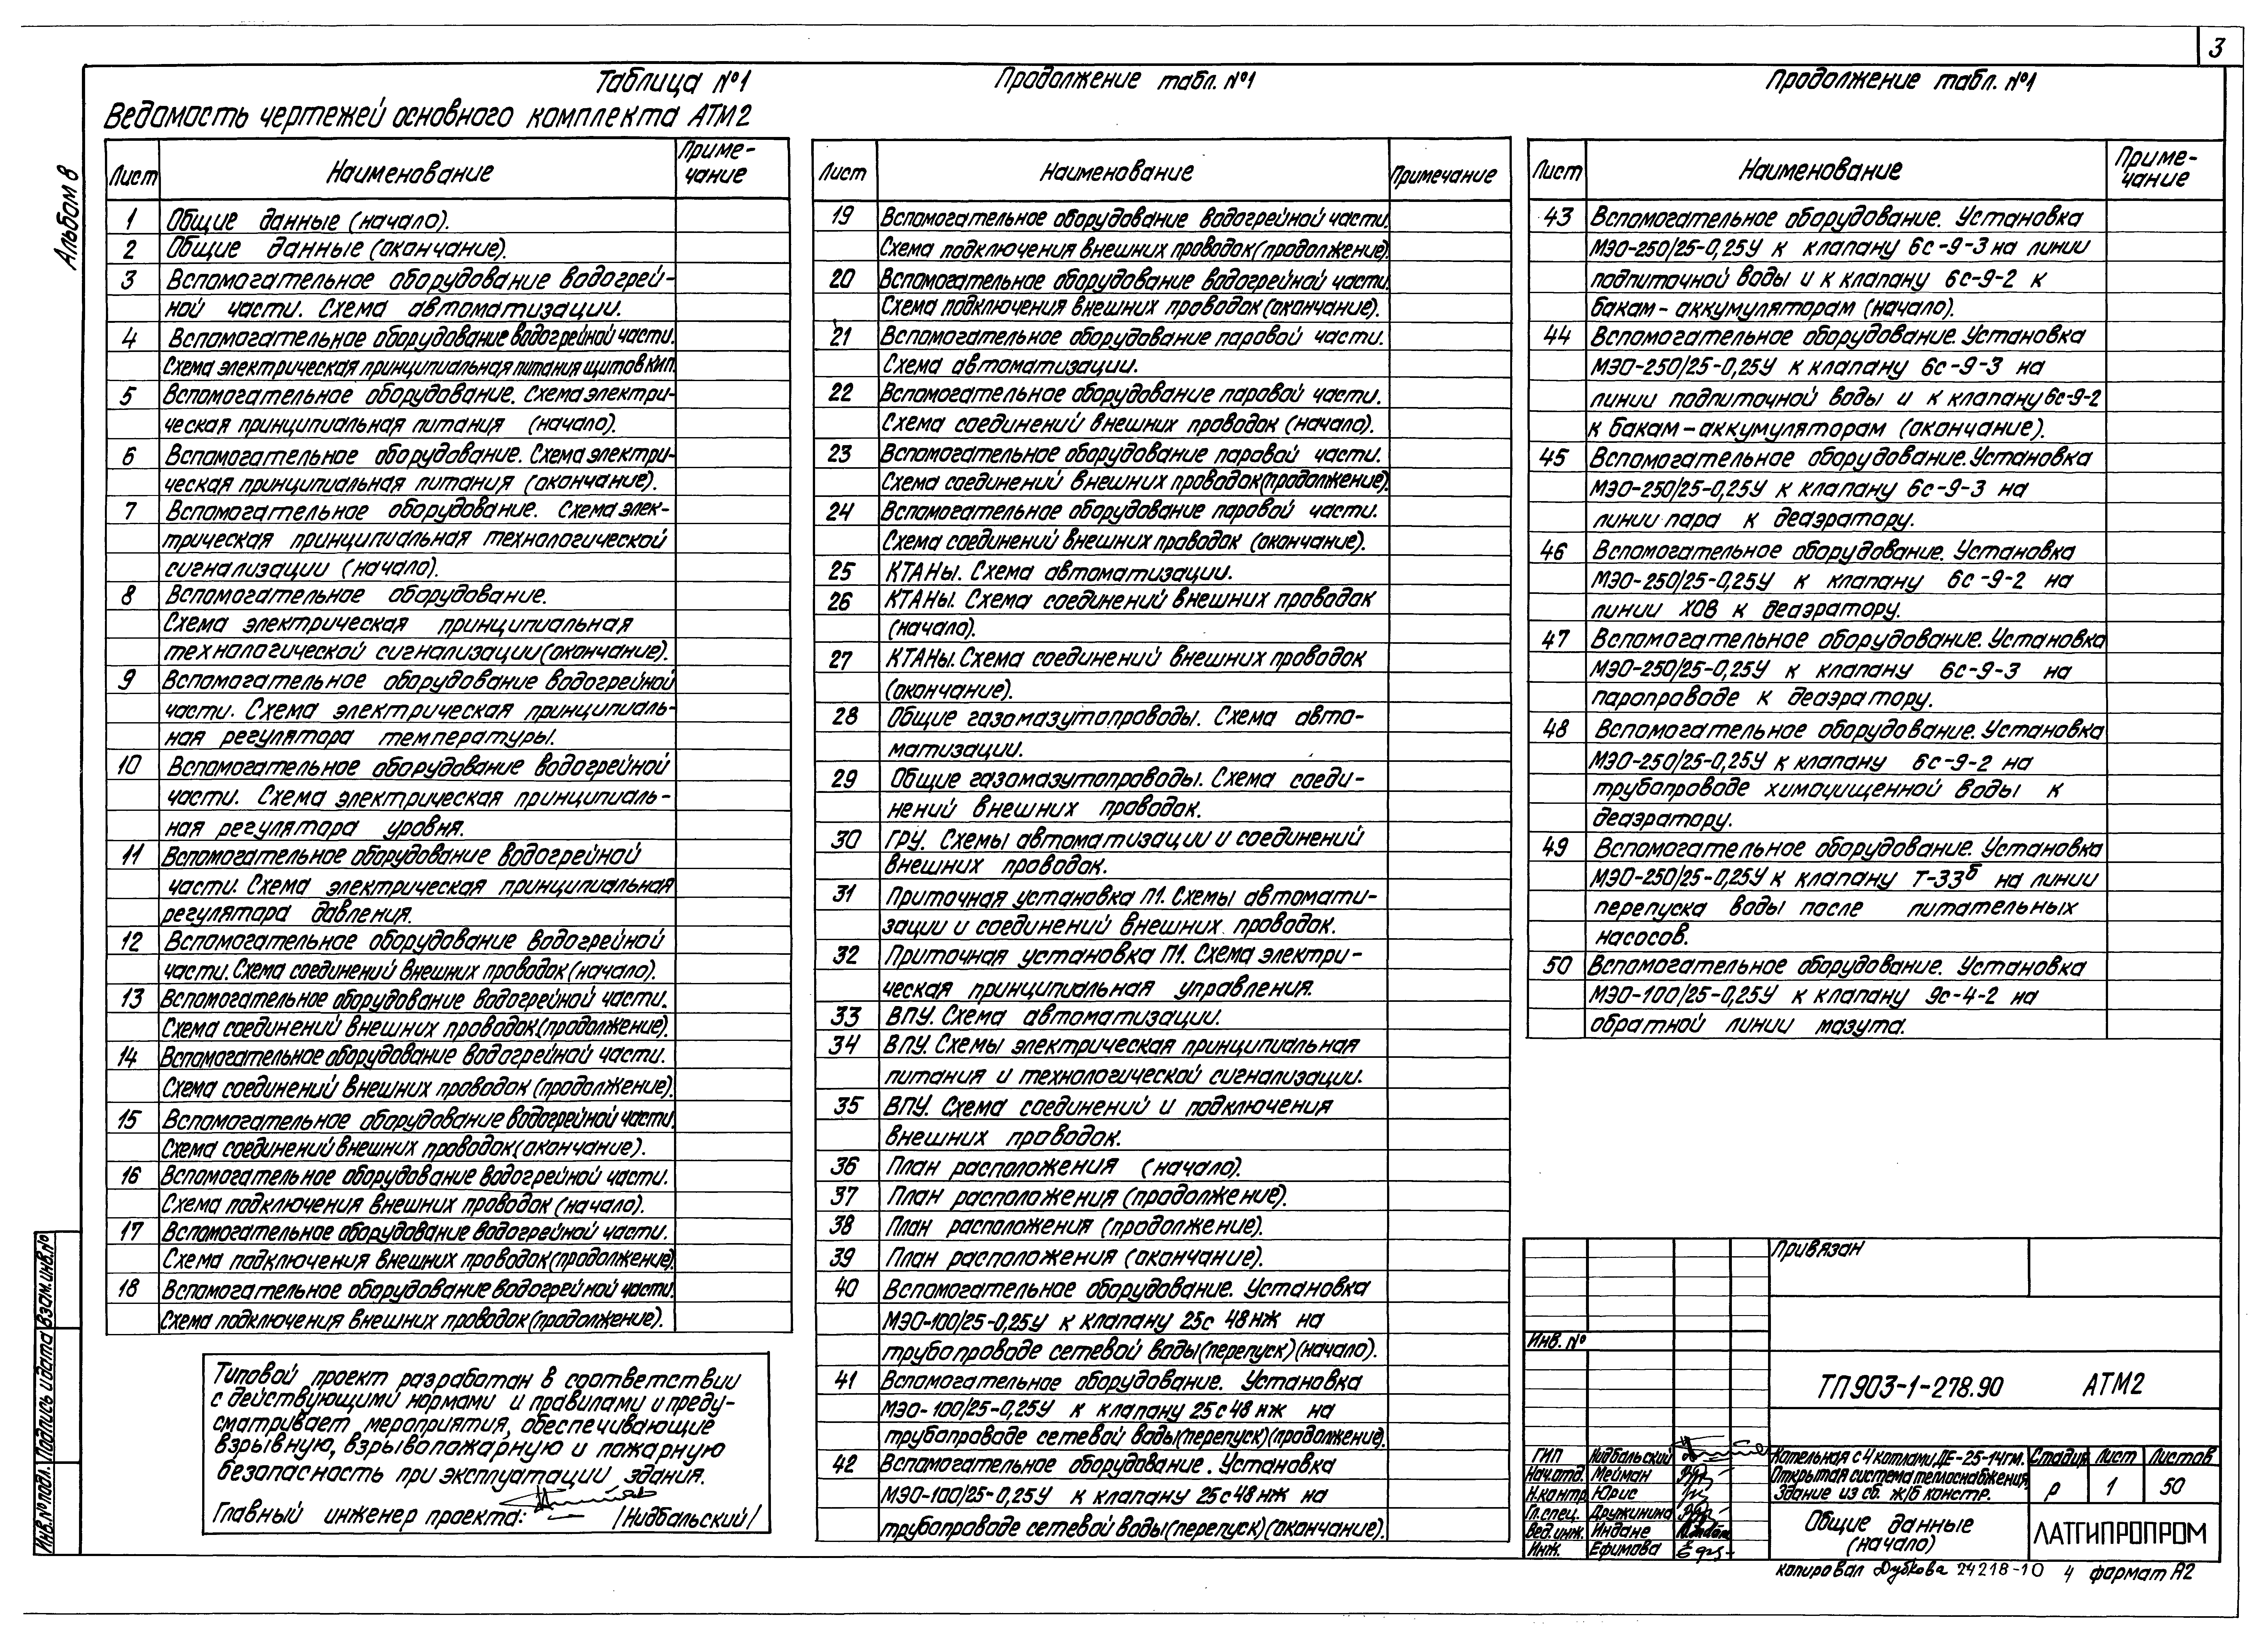 3
Альбом 8
Таблица №1
Ведомость чертежей основного комплекта АТМ2
Лист Наименование Приме-
чание
1 Общие данные (начало).
2 Общие данные (окончание).
3 Вспомогательное оборудование водогрей-
ной части. Схема автоматизации.
4 Вспомогательное оборудование водогрейной части.
Схема электрическая принципиальная питания щитов КИП.
5 Вспомогательное оборудование. Схема электри-
ческая принципиальная питания (начало).
6 Вспомогательное оборудование. Схема электри-
ческая принципиальная питания (окончание).
7 Вспомогательное оборудование. Схема элек-
трическая принципиальная технологической
сигнализации (начало).
8 Вспомогательное оборудование.
Схема электрическая принципиальная
технологической сигнализации (окончание).
9 Вспомогательное оборудование водогрейной
части. Схема электрическая принципиаль-
ная регулятора температуры.
10 Вспомогательное оборудование водогрейной
части. Схема электрическая принципиаль-
ная регулятора уровня.
11 Вспомогательное оборудование водогрейной
части. Схема электрическая принципиальная
регулятора давления.
12 Вспомогательное оборудование водогрейной
части. Схема соединений внешних проводок (начало).
13 Вспомогательное оборудование водогрейной части.
Схема соединений внешних проводок (продолжение).
14 Вспомогательное оборудование водогрейной части.
Схема соединений внешних проводок (продолжение).
15 Вспомогательное оборудование водогрейной части.
Схема соединений внешних проводок (окончание).
16 Вспомогательное оборудование водогрейной части.
Схема подключения внешних проводок (начало).
17 Вспомогательное оборудование водогрейной части.
Схема подключения внешних проводок (продолжение).
18 Вспомогательное оборудование водогрейной части.
Схема подключения внешних проводок (продолжение).
Типовой проект разработан в соответствии
с действующими нормами и правилами и преду-
сматривает мероприятия, обеспечивающие
взрывную, взрывопожарную и пожарную
безопасность при эксплуатации здания.
Главный инженер проекта: /Нидбальский/
Продолжение табл. №1
Лист Наименование Примечание
19 Вспомогательное оборудование водогрейной части.
Схема подключения внешних проводок (продолжение).
20 Вспомогательное оборудование водогрейной части.
Схема подключения внешних проводок (окончание).
21 Вспомогательное оборудование паровой части.
Схема автоматизации.
22 Вспомогательное оборудование паровой части.
Схема соединений внешних проводок (начало).
23 Вспомогательное оборудование паровой части.
Схема соединений внешних проводок (продолжение).
24 Вспомогательное оборудование паровой части.
Схема соединений внешних проводок (окончание).
25 КТАНы. Схема автоматизации.
26 КТАНы. Схема соединений внешних проводок
(начало).
27 КТАНы. Схема соединений внешних проводок
(окончание).
28 Общие газомазутопроводы. Схема авто-
матизации.
29 Общие газомазутопроводы. Схема соеди-
нений внешних проводок.
30 ГРУ. Схемы автоматизации и соединений
внешних проводок.
31 Приточная установка П1. Схемы автомати-
зации и соединений внешних проводок.
32 Приточная установка П1. Схема электри-
ческая принципиальная управления.
33 ВПУ. Схема автоматизации.
34 ВПУ. Схемы электрическая принципиальная
питания и технологической сигнализации.
35 ВПУ. Схема соединений и подключения
внешних проводок.
36 План расположения (начало).
37 План расположения (продолжение).
38 План расположения (продолжение).
39 План расположения (окончание).
40 Вспомогательное оборудование. Установка
МЭО-100/25-0,25У к клапану 25с 48нж на
трубопроводе сетевой воды (перепуск) (начало).
41 Вспомогательное оборудование. Установка
МЭО-100/25-0,25У к клапану 25с48нж на
трубопроводе сетевой воды (перепуск) (продолжение).
42 Вспомогательное оборудование. Установка
МЭО-100/25-0,25У к клапану 25с48нж на
трубопроводе сетевой воды (перепуск) (окончание).
Продолжение табл. №1
Лист Наименование Приме-
чание
43 Вспомогательное оборудование. Установка
МЭО-250/25-0,25У к клапану 6с-9-3 на линии
подпиточной воды и к клапану 6с-9-2 к
бакам-аккумуляторам (начало).
44 Вспомогательное оборудование. Установка
МЭО-250/25-0,25У к клапану 6с-9-3 на
линии подпиточной воды и к клапану 6с-9-2
к бакам-аккумуляторам (окончание).
45 Вспомогательное оборудование. Установка
МЭО-250/25-0,25У к клапану 6с-9-3 на
линии пара к деаэратору.
46 Вспомогательное оборудование. Установка
МЭО-250/25-0,25У к клапану 6с-9-2 на
линии ХОВ к деаэратору.
47 Вспомогательное оборудование. Установка
МЭО-250/25-0,25У к клапану 6с-9-3 на
паропроводе к деаэратору.
48 Вспомогательное оборудование. Установка
МЭО-250/25-0,25У к клапану 6с-9-2 на
трубопроводе химочищенной воды к
деаэратору.
49 Вспомогательное оборудование. Установка
МЭО-250/25-0,25У к клапану Т-33б на линии
перепуска воды после питательных
насосов.
50 Вспомогательное оборудование. Установка
МЭО-100/25-0,25У к клапану 9с-4-2 на
обратной линии мазута.
Привязан
Инв. №
ТП 903-1-278.90 АТМ2
ГИП Нидбальский
Нач.отд. Мейман
Н.контр. Юрис
Гл.спец. Дружинина
Вед.инж. Индане
Инж. Ефимова
Котельная с 4 котлами ДЕ-25-14гм.
Открытая система теплоснабжения.
Здание из сб. ж/б констр.
Стадия Лист Листов
Р 1 50
Общие данные
(начало)
ЛАТГИПРОПРОМ
Копировал Дубкова 24218-10 4 формат А2
Инв.№ подл. Подпись и дата Взам.инв.№